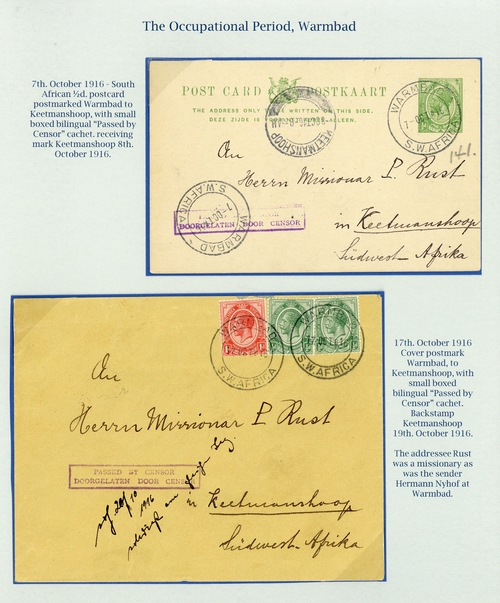 The Occupational Period, Warmbad
7th. October 1916 - South
African ½d. postcard
postmarked Warmbad to
Keetmanshoop, with small
boxed bilingual "Passed by
Censor" cachet. receiving
mark Keetmanshoop 8th.
October 1916.
POST CARD POSTKAART
THE ADDRESS ONLY TO BE WRITTEN ON THIS SIDE.
DEZE ZIJDE IS VOOR HET ADRES ALLEEN.
WARMBAD
S.W.AFRICA
KEETMANSHOOP
141.
An
Herrn Missionar P. Rust
in Keetmanshoop
Südwest-Afrika
WARMBAD
S.W.AFRICA
DOORGELATEN DOOR CENSOR
17th. October 1916
Cover postmark
Warmbad, to
Keetmanshoop, with
small boxed
bilingual "Passed by
Censor" cachet.
Backstamp
Keetmanshoop
19th. October 1916.
The addressee Rust
was a missionary as
was the sender
Hermann Nyhof at
Warmbad.
WARMBAD
S.W.AFRICA
WARMBAD
S.W.AFRICA
An
Herrn Missionar P. Rust
PASSED BY CENSOR
DOORGELATEN DOOR CENSOR
in Keetmanshoop
Südwest-Afrika
20/10
1916